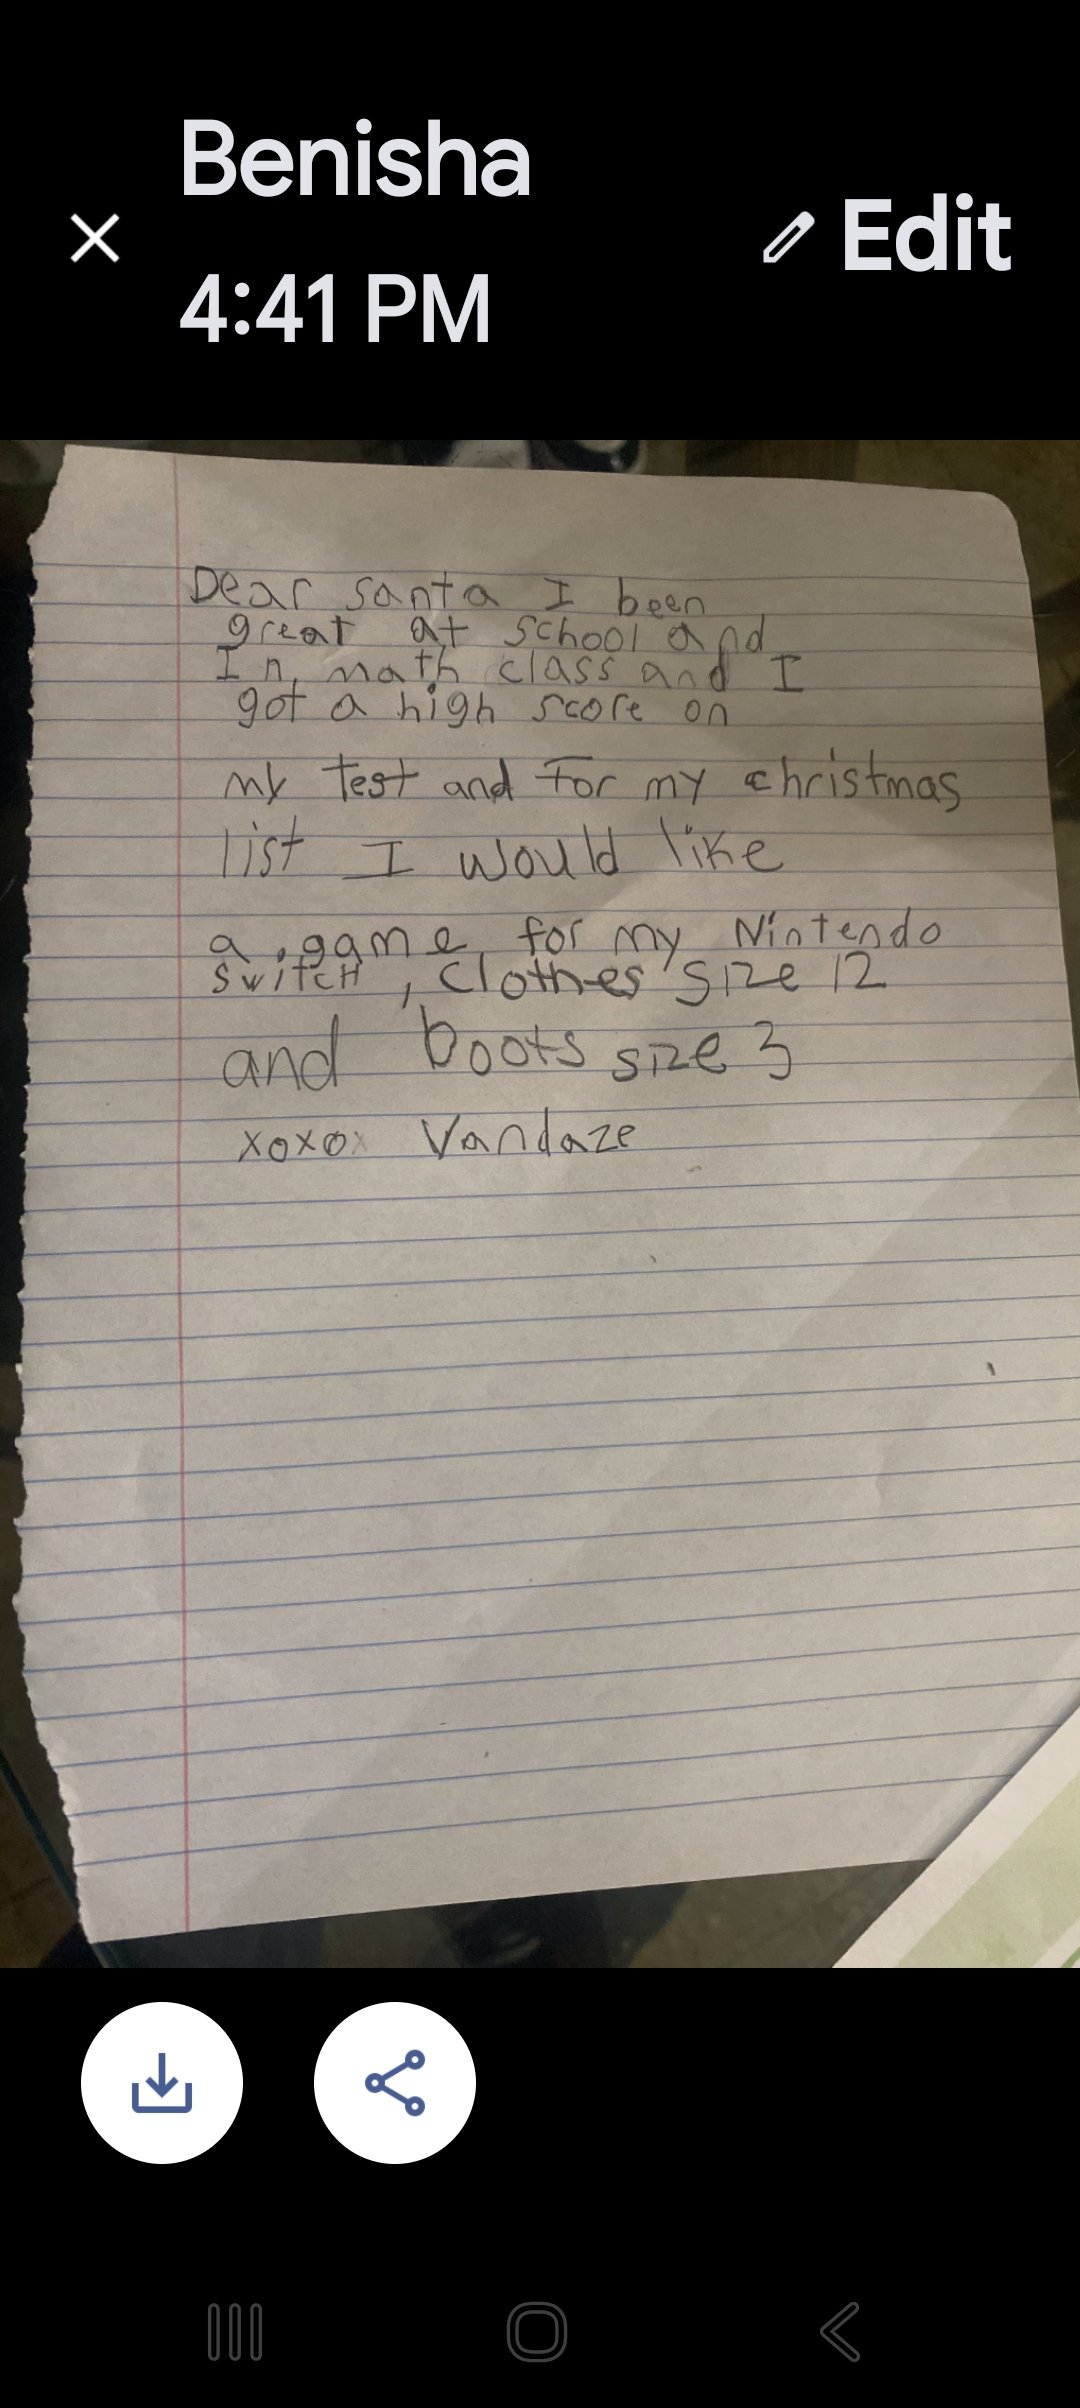 Benisha
Edit
4:41 PM
Dear santa I been
great at school and
In math class and I
got a high score on
my test and for my christmas
list I would like
a game for my Nintendo
switcH, clothes size 12
and boots size 3
xoxox Vandaze